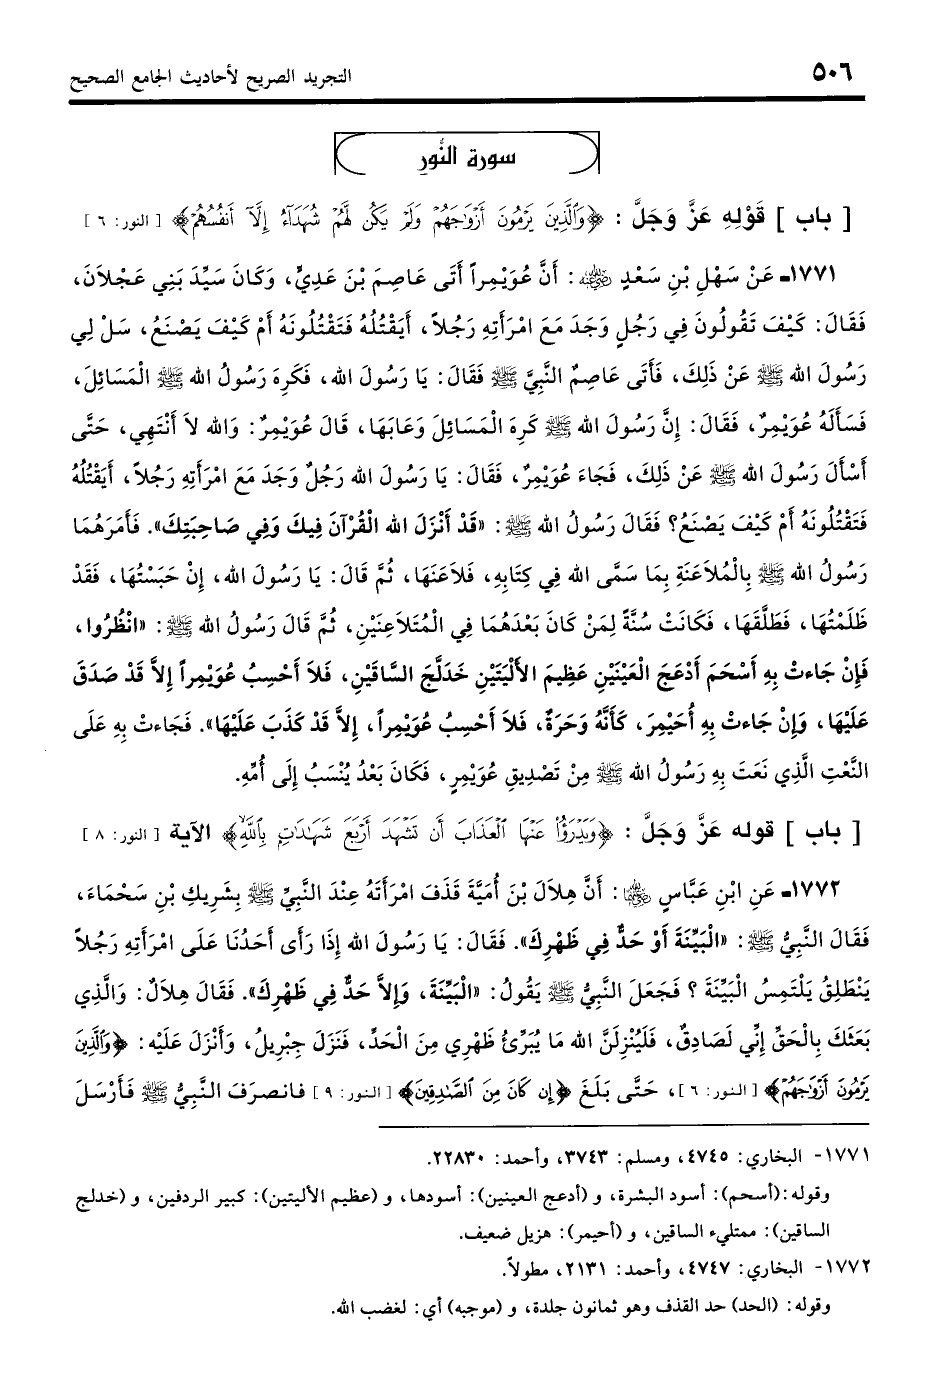 ٥٠٦
التجريد الصريح لأحاديث الجامع الصحيح
سورة النُّور
[ باب ] قَوْلِهِ عَزَّ وَجَلَّ : ﴿وَٱلَّذِينَ يَرْمُونَ أَزْوَٰجَهُمْ وَلَمْ يَكُن لَّهُمْ شُهَدَآءُ إِلَّآ أَنفُسُهُمْ﴾ [ النور: ٦ ]
١٧٧١ـ عَنْ سَهْلِ بْنِ سَعْدٍ رضي الله عنه : أَنَّ عُوَيْمِراً أَتَى عَاصِمَ بْنَ عَدِيٍّ، وَكَانَ سَيِّدَ بَنِي عَجْلاَنَ،
فَقَالَ: كَيْفَ تَقُولُونَ فِي رَجُلٍ وَجَدَ مَعَ امْرَأَتِهِ رَجُلاً، أَيَقْتُلُهُ فَتَقْتُلُونَهُ أَمْ كَيْفَ يَصْنَعُ، سَلْ لِي
رَسُولَ الله ﷺ عَنْ ذَلِكَ، فَأَتَى عَاصِمٌ النَّبِيَّ ﷺ فَقَالَ: يَا رَسُولَ الله، فَكَرِهَ رَسُولُ الله ﷺ الْمَسَائِلَ،
فَسَأَلَهُ عُوَيْمِرٌ، فَقَالَ: إِنَّ رَسُولَ الله ﷺ كَرِهَ الْمَسَائِلَ وَعَابَهَا، قَالَ عُوَيْمِرٌ: وَالله لاَ أَنْتَهِي، حَتَّى
أَسْأَلَ رَسُولَ الله ﷺ عَنْ ذَلِكَ، فَجَاءَ عُوَيْمِرٌ، فَقَالَ: يَا رَسُولَ الله رَجُلٌ وَجَدَ مَعَ امْرَأَتِهِ رَجُلاً، أَيَقْتُلُهُ
فَتَقْتُلُونَهُ أَمْ كَيْفَ يَصْنَعُ؟ فَقَالَ رَسُولُ الله ﷺ: «قَدْ أَنْزَلَ الله الْقُرْآنَ فِيكَ وَفِي صَاحِبَتِكَ». فَأَمَرَهُمَا
رَسُولُ الله ﷺ بِالْمُلاَعَنَةِ بِمَا سَمَّى الله فِي كِتَابِهِ، فَلاَعَنَهَا، ثُمَّ قَالَ: يَا رَسُولَ الله، إِنْ حَبَسْتُهَا، فَقَدْ
ظَلَمْتُهَا، فَطَلَّقَهَا، فَكَانَتْ سُنَّةً لِمَنْ كَانَ بَعْدَهُمَا فِي الْمُتَلاَعِنَيْنِ، ثُمَّ قَالَ رَسُولُ الله ﷺ: «انْظُرُوا،
فَإِنْ جَاءتْ بِهِ أَسْحَمَ أَدْعَجَ الْعَيْنَيْنِ عَظِيمَ الأَلْيَتَيْنِ خَدَلَّجَ السَّاقَيْنِ، فَلاَ أَحْسِبُ عُوَيْمِراً إِلاَّ قَدْ صَدَقَ
عَلَيْهَا، وَإِنْ جَاءتْ بِهِ أُحَيْمِرَ، كَأَنَّهُ وَحَرَةٌ، فَلاَ أَحْسِبُ عُوَيْمِراً، إِلاَّ قَدْ كَذَبَ عَلَيْهَا». فَجَاءتْ بِهِ عَلَى
النَّعْتِ الَّذِي نَعَتَ بِهِ رَسُولُ الله ﷺ مِنْ تَصْدِيقِ عُوَيْمِرٍ، فَكَانَ بَعْدُ يُنْسَبُ إِلَى أُمِّهِ.
[ باب ] قوله عَزَّ وَجَلَّ : ﴿وَيَدْرَؤُاْ عَنْهَا ٱلْعَذَابَ أَن تَشْهَدَ أَرْبَعَ شَهَٰدَٰتٍۭ بِٱللَّهِ﴾ الآية [ النور: ٨ ]
١٧٧٢ـ عَنِ ابْنِ عَبَّاسٍ رضي الله عنهما : أَنَّ هِلاَلَ بْنَ أُمَيَّةَ قَذَفَ امْرَأَتَهُ عِنْدَ النَّبِيِّ ﷺ بِشَرِيكِ بْنِ سَحْمَاءَ،
فَقَالَ النَّبِيُّ ﷺ: «الْبَيِّنَةَ أَوْ حَدٌّ فِي ظَهْرِكَ». فَقَالَ: يَا رَسُولَ الله إِذَا رَأَى أَحَدُنَا عَلَى امْرَأَتِهِ رَجُلاً
يَنْطَلِقُ يَلْتَمِسُ الْبَيِّنَةَ ؟ فَجَعَلَ النَّبِيُّ ﷺ يَقُولُ: «الْبَيِّنَةَ، وَإِلاَّ حَدٌّ فِي ظَهْرِكَ». فَقَالَ هِلاَلٌ: وَالَّذِي
بَعَثَكَ بِالْحَقِّ إِنِّي لَصَادِقٌ، فَلَيُنْزِلَنَّ الله مَا يُبَرِّئُ ظَهْرِي مِنَ الْحَدِّ، فَنَزَلَ جِبْرِيلُ، وَأَنْزَلَ عَلَيْهِ: ﴿وَٱلَّذِينَ
يَرْمُونَ أَزْوَٰجَهُمْ﴾ [ النور: ٦ ]، حَتَّى بَلَغَ ﴿إِن كَانَ مِنَ ٱلصَّٰدِقِينَ﴾ [ النور: ٩ ] فانصرَفَ النَّبِيُّ ﷺ فَأَرْسَلَ
١٧٧١- البخاري: ٤٧٤٥، ومسلم: ٣٧٤٣، وأحمد: ٢٢٨٣٠.
وقوله: (أسحم): أسود البشرة، و (أدعج العينين): أسودها، و (عظيم الأليتين): كبير الردفين، و (خدلج
الساقين): ممتليء الساقين، و (أحيمر): هزيل ضعيف.
١٧٧٢- البخاري: ٤٧٤٧، وأحمد: ٢١٣١، مطولاً.
وقوله: (الحد) حد القذف وهو ثمانون جلدة، و (موجبه) أي: لغضب الله.